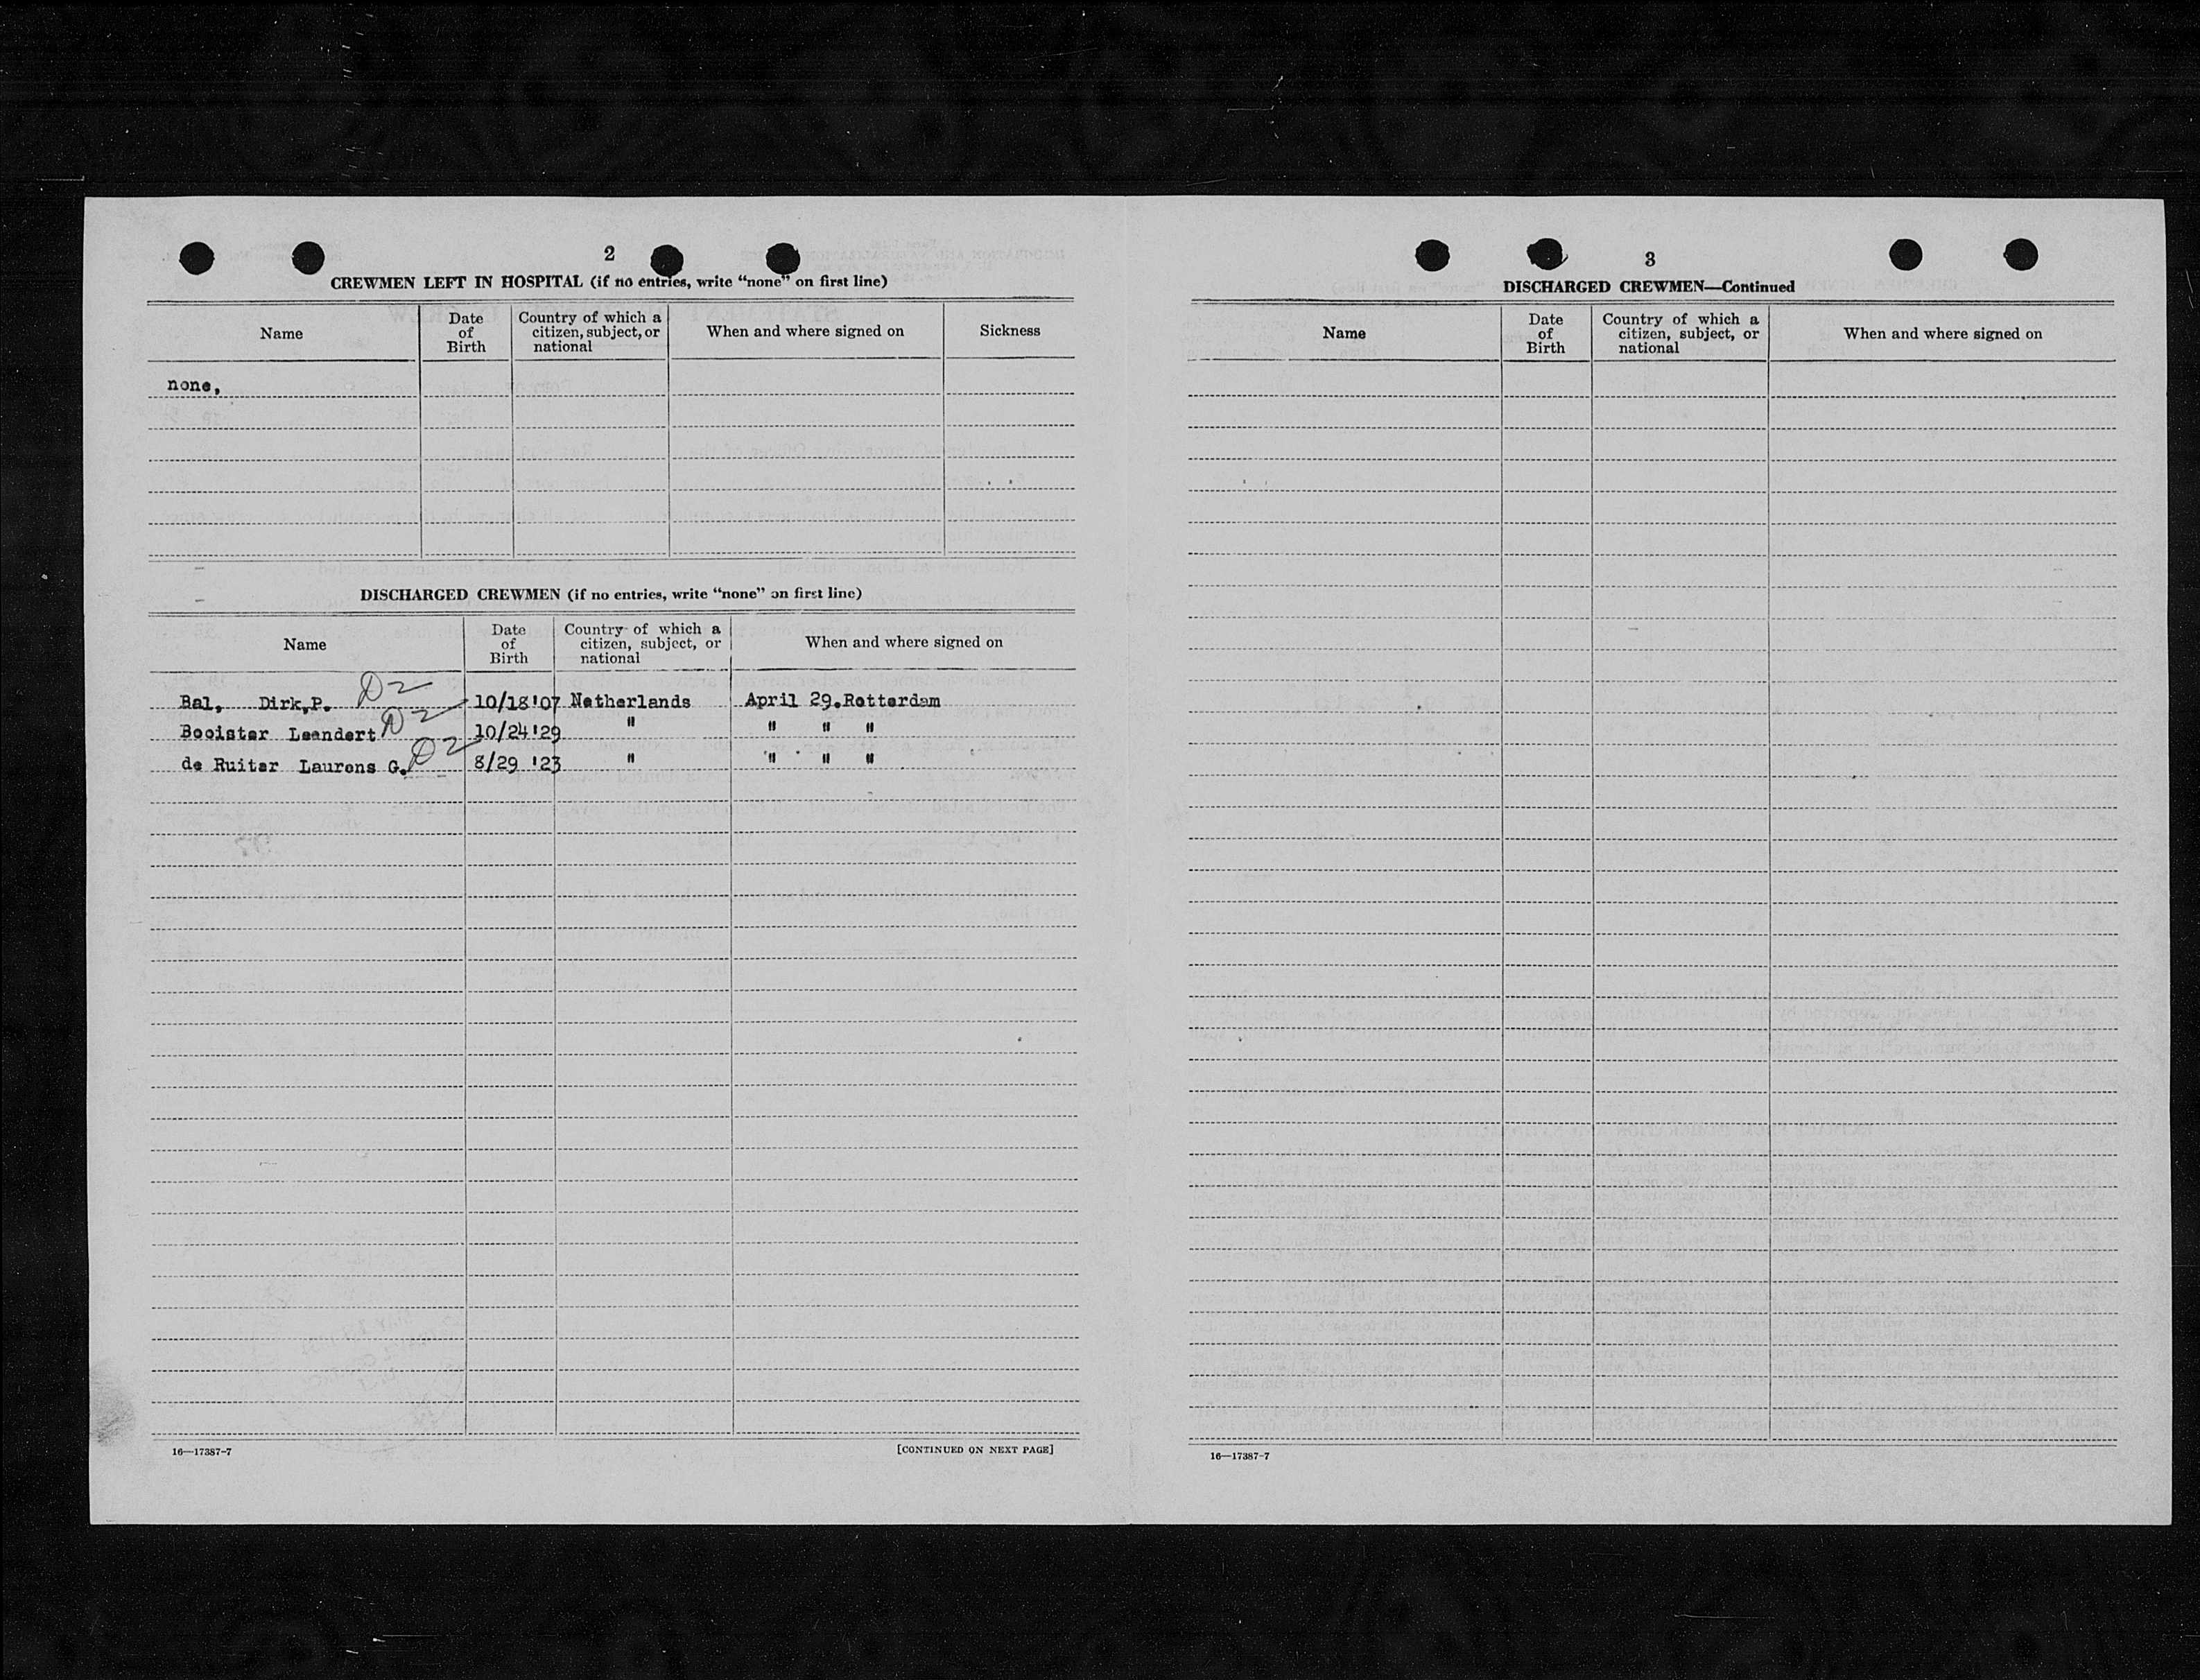 2
CREWMEN LEFT IN HOSPITAL (if no entries, write "none" on first line)
Name
Date of Birth
Country of which a citizen, subject, or national
When and where signed on
Sickness
none,
DISCHARGED CREWMEN (if no entries, write "none" on first line)
Name
Date of Birth
Country of which a citizen, subject, or national
When and where signed on
Bal, Dirk,P. D2 10/18'07 Netherlands April 29.Rotterdam
Booister Leendert D2 10/24'29 " " " "
de Ruiter Laurens G. D2 8/29 '23 " " " "
16—17387-7
[CONTINUED ON NEXT PAGE]
3
DISCHARGED CREWMEN—Continued
Name
Date of Birth
Country of which a citizen, subject, or national
When and where signed on
16—17387-7